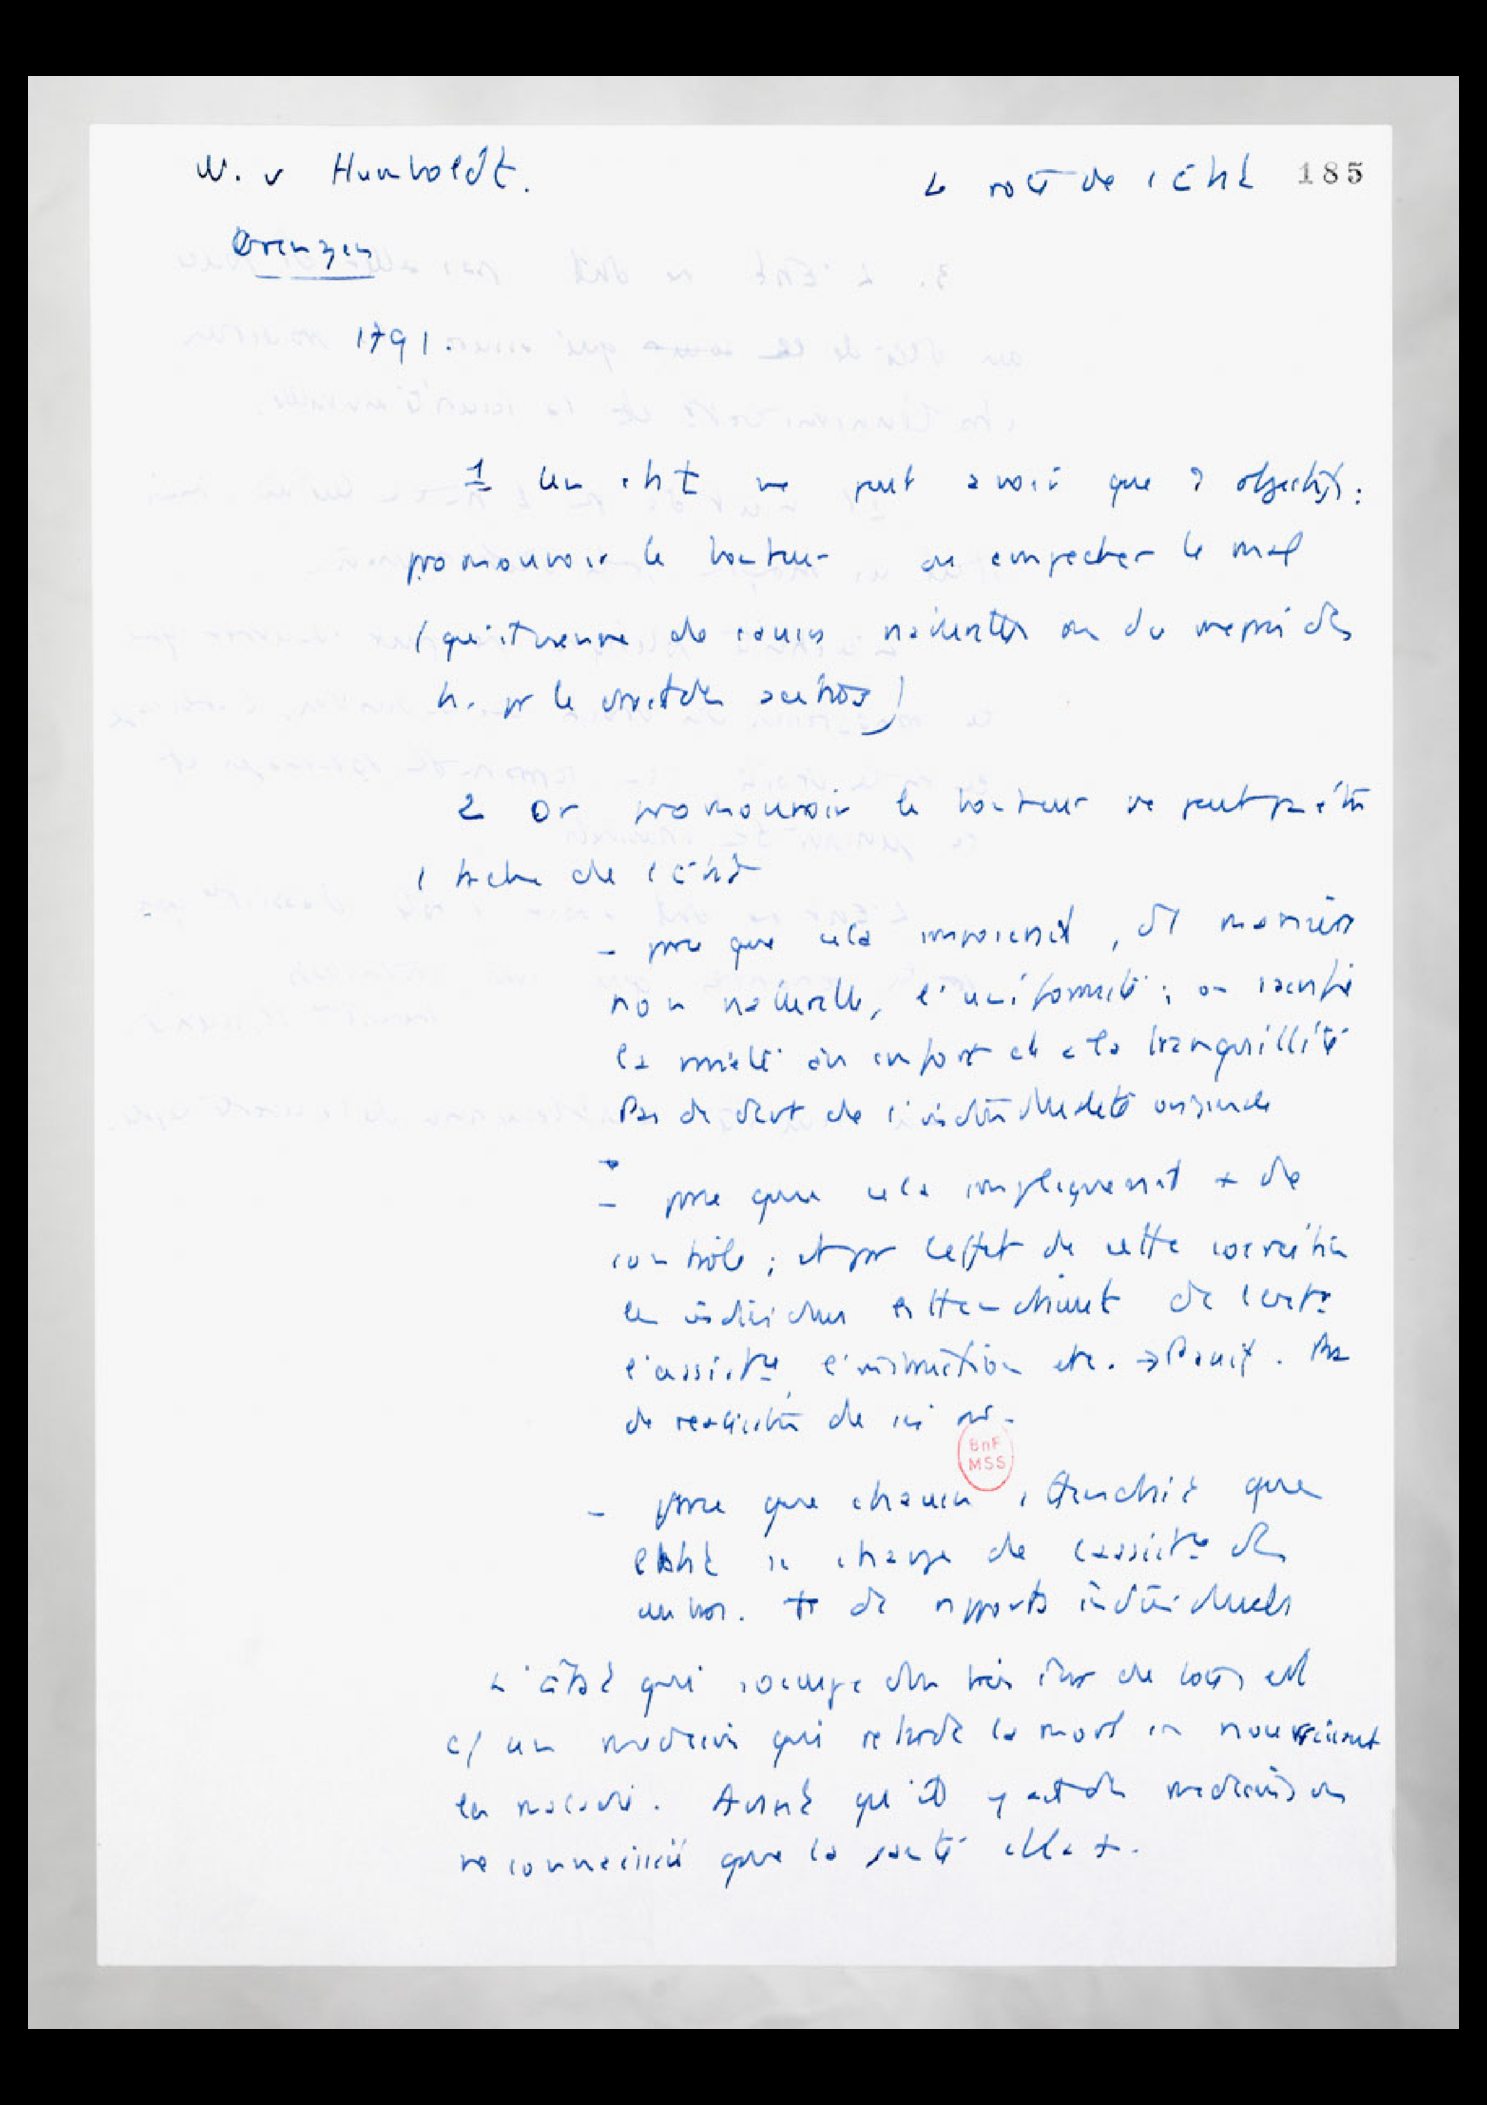 W. v Humboldt.
Le rôle de l'Etat 185
Grenzen
1791.
1 Un état ne peut avoir que 2 objectifs :
promouvoir le bonheur ou empecher le mal
(qu'il vienne de causes naturelles ou du mepris des
h. pr le droit des autres)
2 Or promouvoir le bonheur ne peut pas être
la tache de l'Etat
- parce que cela imposerait, de manière
non naturelle, l'uniformité ; on sacrifie
la variété au confort et a la tranquillité
Pas de dvt de l'individualité originale
- parce que cela impliquerait + de
contrôle ; et par l'effet de cette coercition
les individus attendraient de l'Etat
l'assistce, l'instruction etc. → Passif. Pas
de
- parce que chacun attendrait que
l'état se charge de l'assistce des
autres. de rapports individuels
L'état qui s'occupe du de tous est
c/ un medecin qui retarde la mort en nourrissant
la maladie. Avant qu'il y ait des medecins on
ne connaissait que la santé et la +.
BnF
MSS